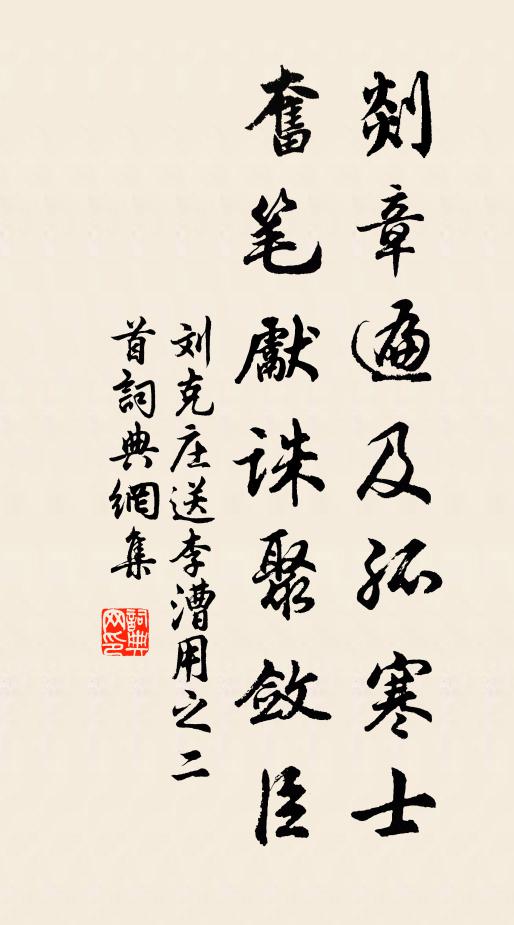 剡章遍及孤寒士
奮笔獻诛聚斂臣
刘克庄送李漕用之二
首詞典網集
詞典
网印